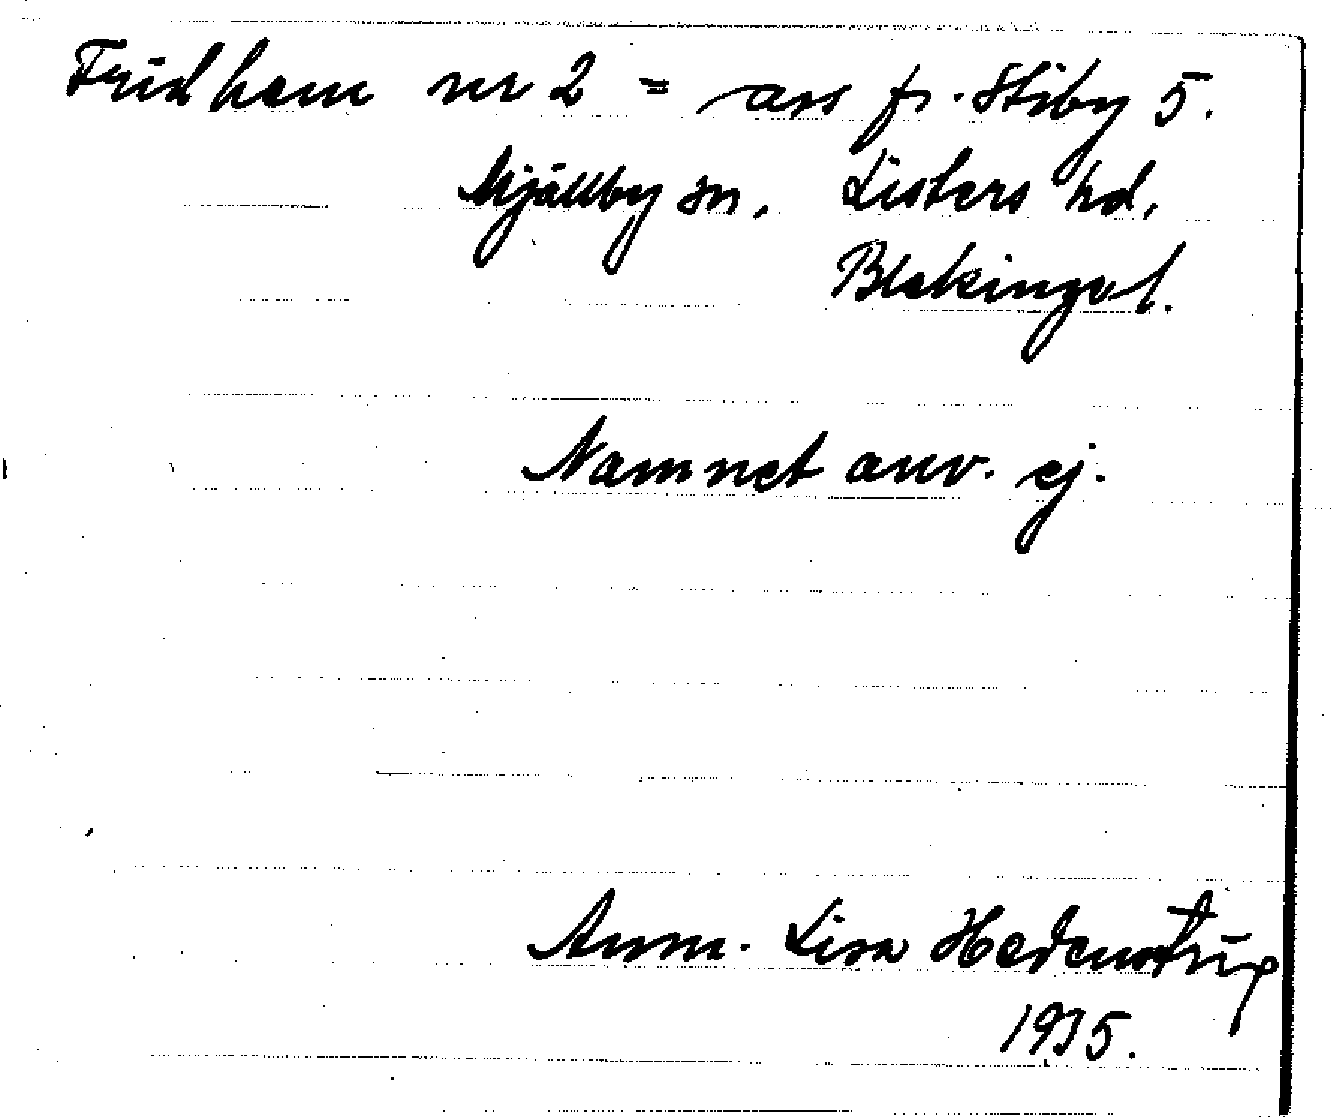 Fridhem nr 2 = avs fr. Stiby 5.
Mjällby sn, Listers hd,
Blekinge l.
Namnet anv. ej.
Ann-Lisa Hedenstrup
1935.